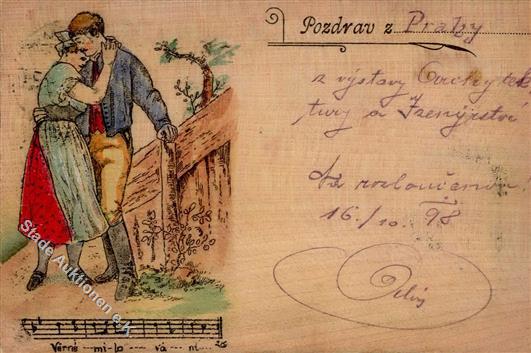 Pozdrav z Prahy
z výstavy Architek
tury a Inženýrství
Na rozloučenou!
16./10. 98
Věrné -mi-lo -- vá -- ní...
Stade Auktionen e.K.